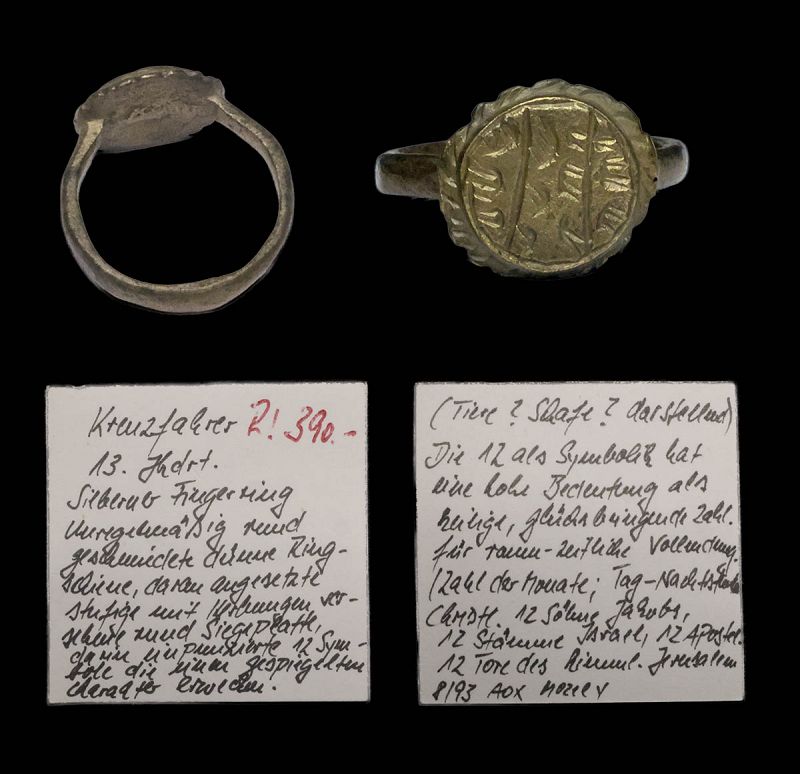 Kreuzfahrer R! 390.-
13. Jhdrt.
Silberner Fingerring
Unregelmäßig rund
geschmiedete dünne Ring-
schiene, daran angesetzte
stufige mit Kerbungen, ver-
sehene rund Siegelplatte,
darin 12 Sym-
bole die einen gespiegelten
Charakter erwecken.
(Tiere? Schafe? darstellend)
Die 12 als Symbolik hat
eine hohe Bedeutung als
heilige, glücksbringende Zahl.
für raum-zeitliche Vollendung.
(Zahl der Monate; Tag-Nachtstunden
Christl. 12 Söhne Jakobs,
12 Stämme Israel, 12 Apostel.
12 Tore des Himml. Jerusalem
8/93